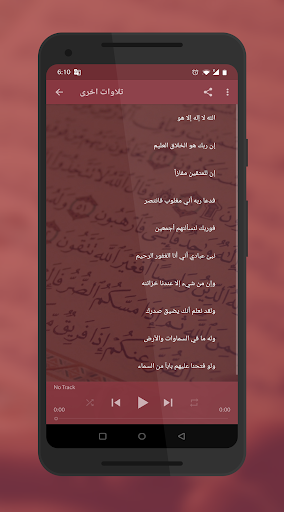 6:10
تلاوات اخرى
الله لا إله إلا هو
إن ربك هو الخلاق العليم
إن للمتقين مفازاً
فدعا ربه أني مغلوب فانتصر
فوربك لنسألنهم أجمعين
نبئ عبادي أني أنا الغفور الرحيم
وإن من شيء إلا عندنا خزائنه
ولقد نعلم أنك يضيق صدرك
وله ما في السماوات والأرض
ولو فتحنا عليهم باباً من السماء
No Track
0:00
0:00